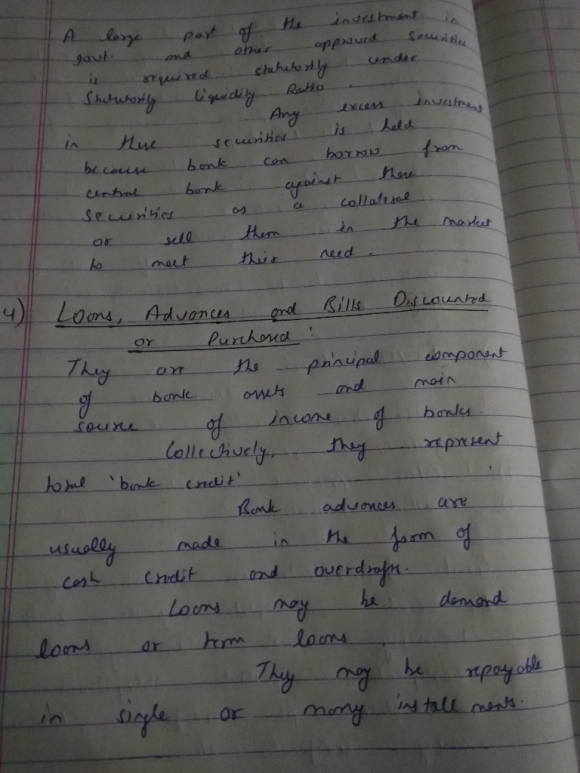 A large part of the investment in
govt. and other approved securities
is required statutorily under
Statutorily Liquidity Ratio.
Any excess investment
in these securities is held
because bank can borrow from
central bank against these
securities as a collateral
or sell them in the market
to meet their need.
4) Loans, Advances and Bills Discounted
or Purchased :
They are the principal component
of bank assets and main
source of income of banks.
Collectively, they represent
total 'bank credit'
Bank advances are
usually made in the form of
cash credit and overdrafts.
Loans may be demand
loans or term loans.
They may be repayable
in single or many installments.